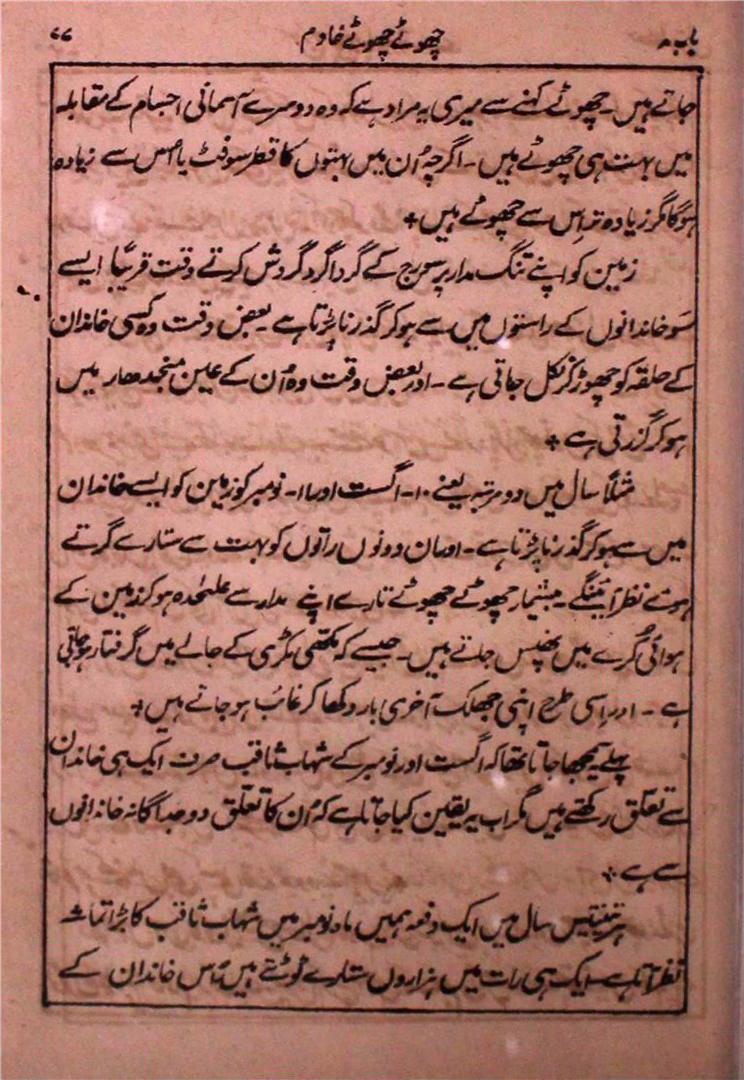 باب ۸ چھوٹے چھوٹے خادم ۷۷
جاتے ہیں۔ چھوٹے کہنے سے میری یہ مراد ہے کہ وہ دوسرے آسمانی اجسام کے مقابلہ
میں بہت ہی چھوٹے ہیں۔ اگرچہ اُن میں بہتوں کا قطر سو فٹ یا اُس سے زیادہ
ہوگا مگر زیادہ تر اِس سے چھوٹے ہیں +
زمین کو اپنے تنگ مدار پر سورج کے گردا گرد گردش کرتے وقت قریباً ایسے
سَو خاندانوں کے راستوں میں سے ہوکر گذرنا پڑتا ہے۔ بعض وقت وہ کسی خاندان
کے حلقہ کو چھوڑ کر نکل جاتی ہے۔ اور بعض وقت وہ اُن کے عین منجدھار میں
ہوکر گزرتی ہے +
مثلاً سال میں دو مرتبہ یعنے ۱۰۔ اگست اور ۱۱۔ نومبر کو زمین کو ایسے خاندان
میں سے ہوکر گذرنا پڑتا ہے۔ اور ان دونوں راتوں کو بہت سے ستارے گرتے
ہوئے نظر آئینگے۔ بیشمار چھوٹے چھوٹے تارے اپنے مدار سے علیٰحدہ ہوکر زمین کے
ہوائی کُرے میں پھنس جاتے ہیں۔ جیسے کہ مکھی مکڑی کے جالے میں گرفتار ہوجاتی
ہے۔ اور اِسی طرح اپنی جھلک آخری بار دکھا کر غائب ہو جاتے ہیں +
پہلے یہ سمجھا جاتا تھا کہ اگست اور نومبر کے شہاب ثاقب صرف ایک ہی خاندان
سے تعلق رکھتے ہیں مگر اب یہ یقین کیا جاتا ہے کہ اُن کا تعلق دو جداگانہ خاندانوں
سے ہے +
ہر تینتیس سال میں ایک دفعہ ہمیں ماہ نومبر میں شہاب ثاقب کا بڑا تماشہ
نظر آتا ہے۔ ایک ہی رات میں ہزاروں ستارے ٹوٹتے ہیں۔ اُس خاندان کے